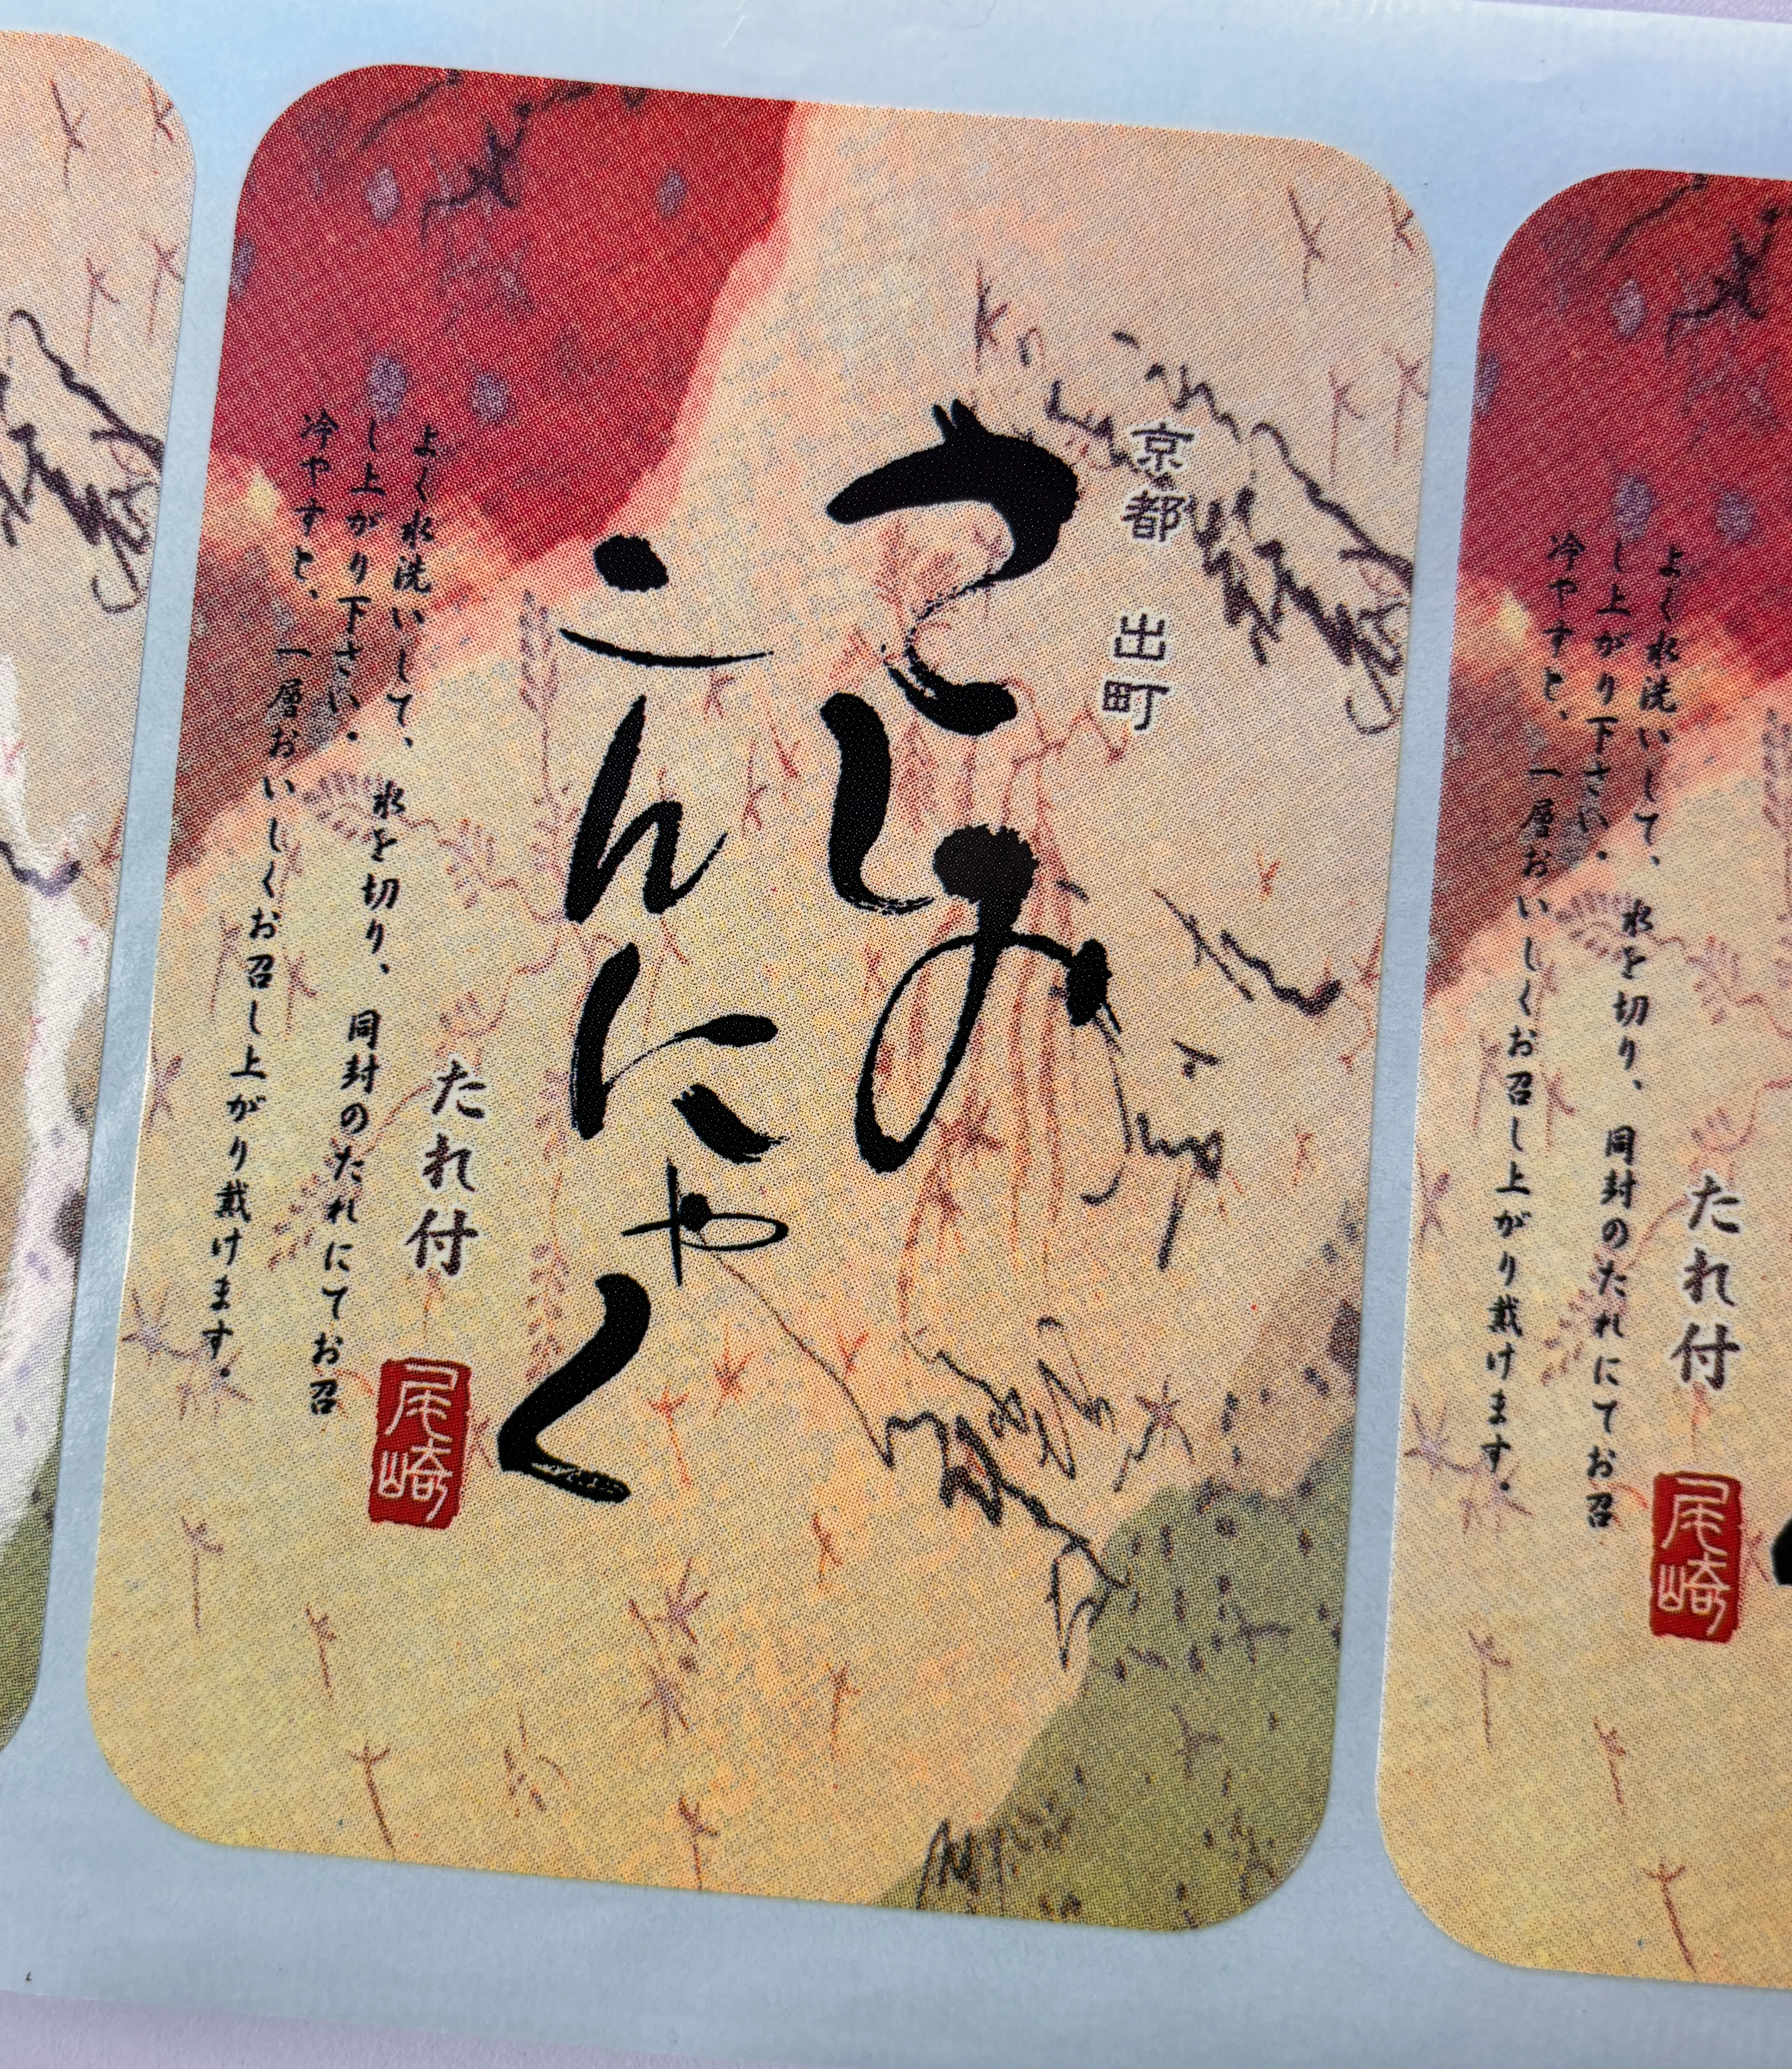 京都 出町
さしみ
こんにゃく
たれ付
尾崎
よく水洗いして、水を切り、同封のたれにてお召
し上がり下さい。
冷やすと、一層おいしくお召し上がり戴けます。
よく水洗いして、水を切り、同封のたれにてお召
し上がり下さい。
冷やすと、一層おいしくお召し上がり戴けます。
たれ付
尾崎